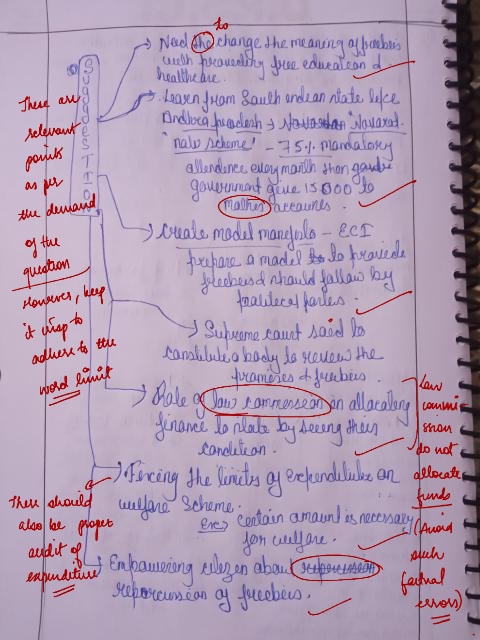 to
Need the change the meaning of freebeis
with proveeding free education &
healthcare.
SuggdesTION
Learn from South indean state like
Andhra pradesh → "Navarat-
nalu scheme" - 75% mandatory
attendence every month than
government give 15000 to
mathes accounts.
Create model manifesto - ECI
prepare a model to proveide
freebeis & should follow by
political parties.
Supreme court said to
constitute a body to review the
premeses of freebeis.
Role of law commession in allocateng
finance to state by seeing their
condition.
Fixing the limites of expenditute on
welfare scheme.
Ex:> certain amount is necessary
for welfare.
Empowering citezen about
reporcussion of freebeis.
These are
relevant
points
as per
the demand
of the
question
However, keep
it crisp to
adhere to the
word limit
There should
also be proper
audit of
expenditure
Law
commi-
ssion
do not
allocate
funds
(Avoid
such
factual
errors)